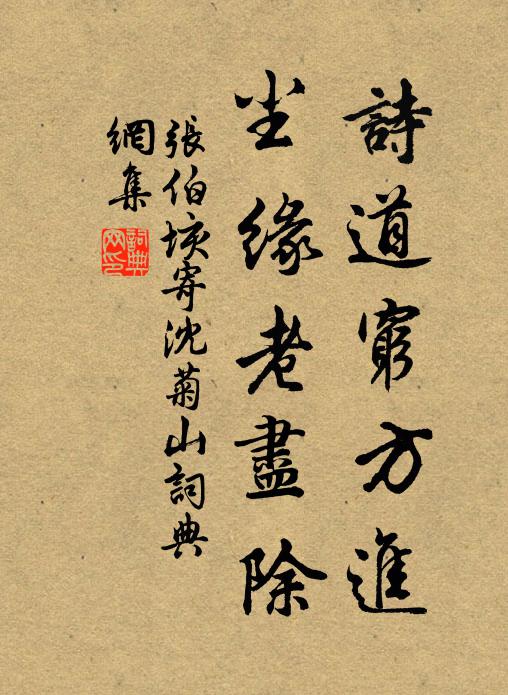 詩道窮方進
尘緣老盡除
張伯垓寄沈菊山詞典
網集
詞典
网印